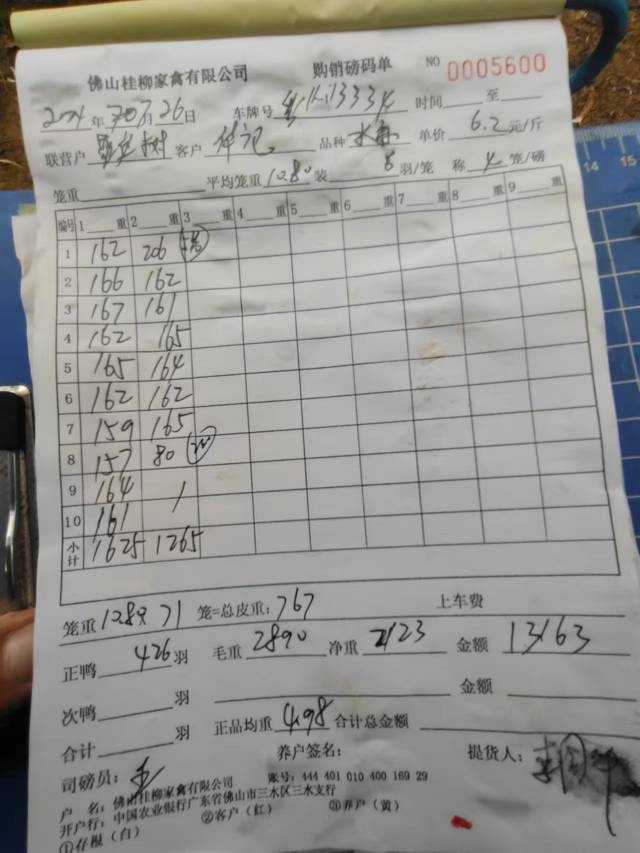 佛山桂柳家禽有限公司 购销磅码单 NO 0005600
年 月26日 车牌号 时间 至
联营户 树 客户 伟记 品种 单价 6.2 元/斤
笼重 平均笼重 1080 装 8 羽/笼 称 4 笼/磅
编号 1 重 2 重 3 重 4 重 5 重 6 重 7 重 8 重 9 重
1 162 206
2 166 162
3 167 161
4 162 165
5 165 164
6 162 162
7 159 165
8 157 80
9 164 1
10 161
小计 1625 1265
笼重 71 笼=总皮重: 767 上车费
正鸭 426 羽 毛重 2890 净重 2123 金额 13163
次鸭 羽 金额
合计 羽 正品均重 4.98 合计总金额
司磅员: 养户签名: 提货人: 李
户 名: 佛山桂柳家禽有限公司 账号: 444 401 010 400 169 29
开户行: 中国农业银行广东省佛山市三水区三水支行
①存根(白) ②客户(红) ③养户(黄)
14 15